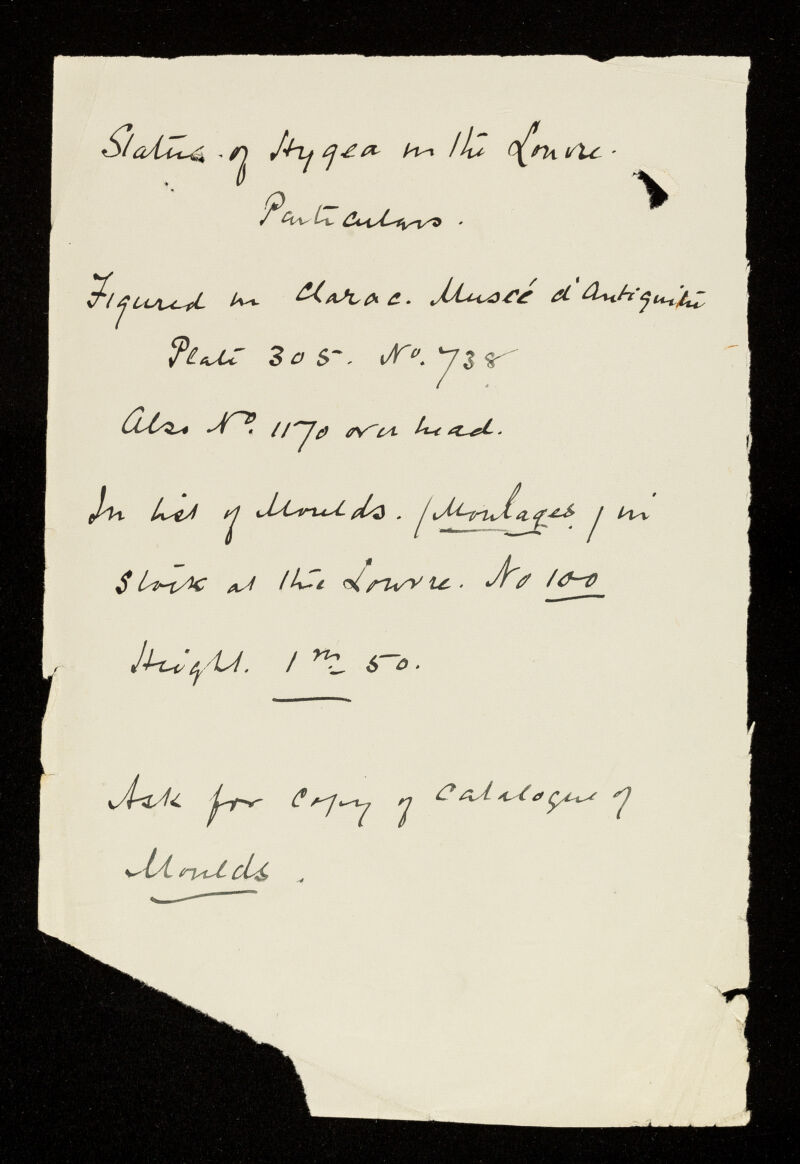 Statue of Hygea in the Louvre.
Particulars.
Figured in Clarac. Museé d'Antiquité
Plate 305. No. 738
Also No. 1170 over head.
In list of Moulds. (Moulages) in
stock at the Louvre. No 100
Height. 1 m. 50.
Ask for copy of Catalogue of
Moulds.